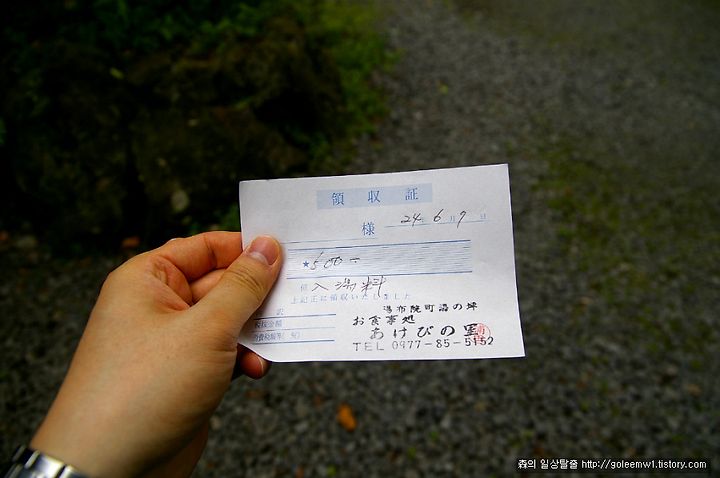 領収証
様 24年 6月 9日
★500-
但 入湯料
上記正に領収いたしました
訳
税抜金額
消費税額等( %)
湯布院町湯の坪
お食事処
あけびの里
TEL 0977-85-5152
森의 일상탈출 http://goleemw1.tistory.com